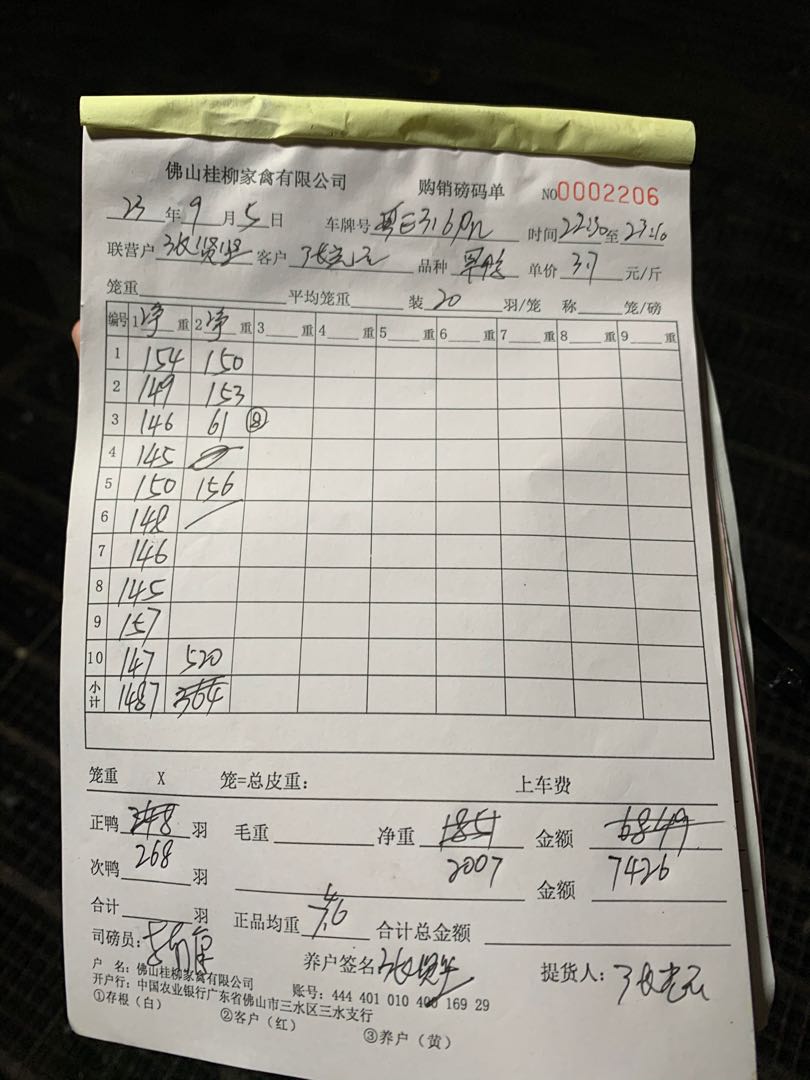 佛山桂柳家禽有限公司 购销磅码单 NO0002206
23 年 9 月 5 日 车牌号 时间 22:30 至 23:10
联营户 张贤坚 客户 张光元 品种 单价 3.7 元/斤
笼重 平均笼重 装 20 羽/笼 称 笼/磅
编号 1 净 重 2 净 重 3 重 4 重 5 重 6 重 7 重 8 重 9 重
1 154 150
2 149 153
3 146 61 ⑧
4 145
5 150 156
6 148
7 146
8 145
9 157
10 147 520
小计 1487 364
笼重 X 笼=总皮重: 上车费
正鸭 248 羽 毛重 净重 1851 金额 6849
268 2007 7426
次鸭 羽 金额
合计 羽 正品均重 7.6 合计总金额
司磅员: 养户签名 提货人: 张光元
户 名: 佛山桂柳家禽有限公司 账号: 444 401 010 400 169 29
开户行: 中国农业银行广东省佛山市三水区三水支行
①存根(白) ②客户(红) ③养户(黄)